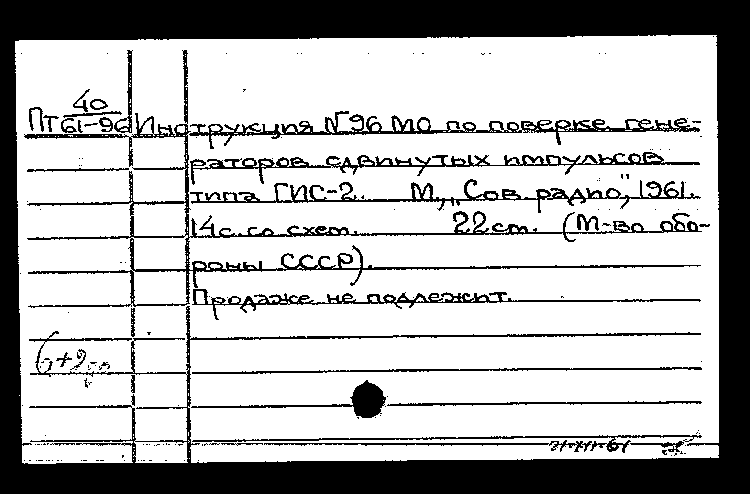 40
Пт 61-96 Инструкция №96 МО по поверке гене-
раторов сдвинутых импульсов
типа ГИС-2. М., „Сов. радио", 1961.
14с. со схем. 22 см. (М-во обо-
роны СССР).
Продаже не подлежит.